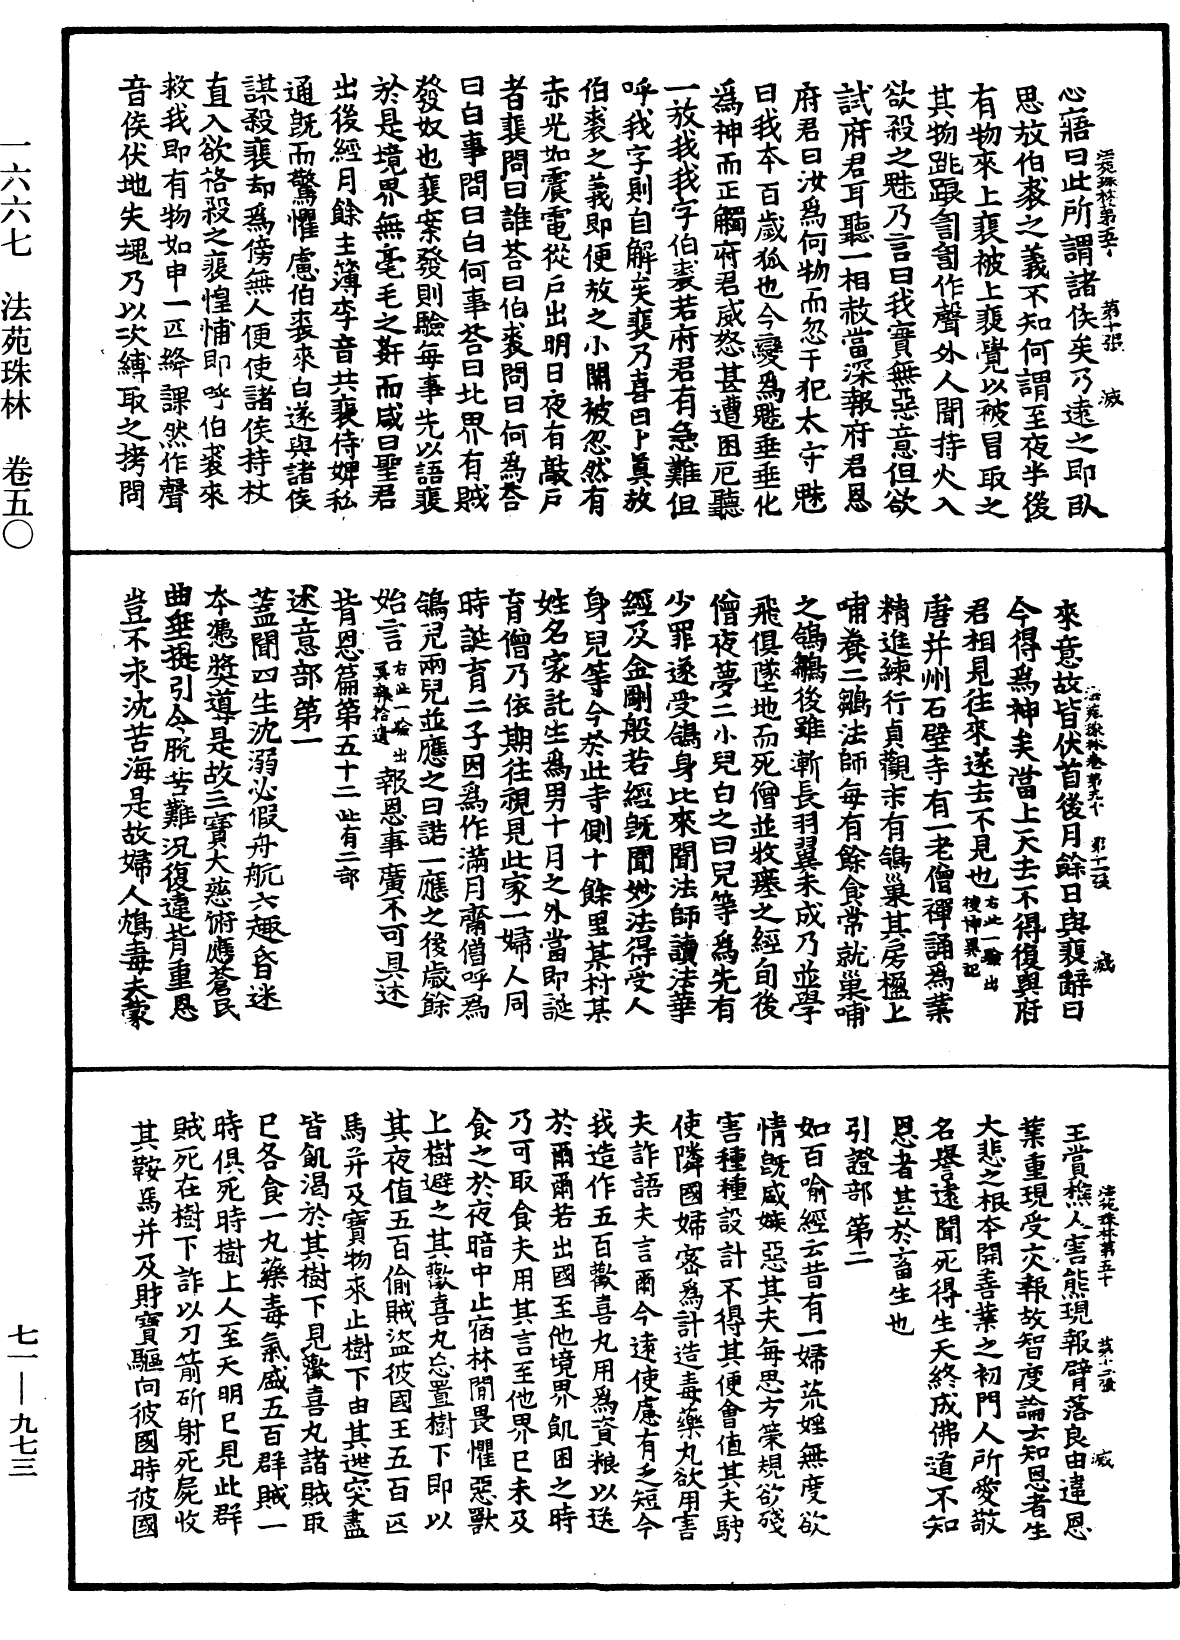 心寤曰此所謂諸侯矣乃遠之即臥
思放伯裘之義不知何謂至夜半後
有物來上裴被上裴覺以被冒取之
其物跳踉訇訇作聲外人聞持火入
欲殺之魅乃言曰我實無惡意但欲
試府君耳聽一相赦當深報府君恩
府君曰汝爲何物而忽干犯太守魅
曰我本百歲狐也今變爲魅垂垂化
爲神而正觸府君威怒甚遭困厄聽
一放我我字伯裘若府君有急難但
呼我字則自解矣裴乃喜曰卜眞放
伯裘之義即便放之小開被忽然有
赤光如震電從戶出明日夜有敲戶
者裴問曰誰荅曰伯裘問曰何爲荅
曰白事問曰白何事荅曰北界有賊
發奴也裴案發則驗每事先以語裴
於是境界無毫毛之姧而咸曰聖君
出後經月餘主簿李音共裴侍婢私
通旣而驚懼慮伯裘來白遂與諸侯
謀殺裴却爲傍無人便使諸侯持杖
直入欲挌殺之裴惶怖即呼伯裘來
救我即有物如申一匹絳課然作聲
音侯伏地失塊乃以次縛取之拷問
法苑珠林第五十
第十張
滅
來意故皆伏首後月餘日與裴辭曰
今得爲神矣當上天去不得復與府
君相見往來遂去不見也右此一驗出搜神異記
唐幷州石壁寺有一老僧禪誦爲業
精進練行貞觀末有鴿巢其房楹上
哺養二鶵法師每有餘食常就巢哺
之鴿鶵後雖漸長羽翼未成乃並學
飛俱墜地而死僧並收瘞之經旬後
僧夜夢二小兒白之曰兒等爲先有
少罪遂受鴿身比來聞法師讀法華
經及金剛般若經旣聞妙法得受人
身兒等今於此寺側十餘里某村某
姓名家託生爲男十月之外當即誕
育僧乃依期往視見此家一婦人同
時誕育二子因爲作滿月齋僧呼爲
鴿兒兩兒並應之曰諾一應之後歲餘
始言右此一驗出冥報拾遺 報恩事廣不可具述
背恩篇第五十二此有二部
述意部第一
蓋聞四生沈溺必假舟航六趣昏迷
本憑奬導是故三寶大慈俯應蒼民
曲垂提引令脫苦難況復違背重恩
豈不永沈苦海是故婦人鴆毒夫蒙
法苑珠林卷第五十
第十一張
滅
王賞樵人害熊現報臂落良由違恩
業重現受交報故智度論云知恩者生
大悲之根本開善業之初門人所愛敬
名譽遠聞死得生天終成佛道不知
恩者甚於畜生也
引證部第二
如百喻經云昔有一婦荒婬無度欲
情旣盛嫉惡其夫每思方策規欲殘
害種種設計不得其便會值其夫騁
使隣國婦密爲計造毒藥丸欲用害
夫詐語夫言爾今遠使慮有乏短今
我造作五百歡喜丸用爲資粮以送
於爾爾若出國至他境界飢困之時
乃可取食夫用其言至他界已未及
食之於夜暗中止宿林間畏懼惡獸
上樹避之其歡喜丸忘置樹下即以
其夜值五百偷賊盜彼國王五百匹
馬并及寶物來止樹下由其逃突盡
皆飢渴於其樹下見歡喜丸諸賊取
已各食一丸藥毒氣盛五百群賊一
時俱死時樹上人至天明已見此群
賊死在樹下詐以刀箭斫射死屍收
其鞍馬并及財寶驅向彼國時彼國
法苑珠林第五十
第十二張
滅
一六六七 法苑珠林 卷五〇
七一—九七三